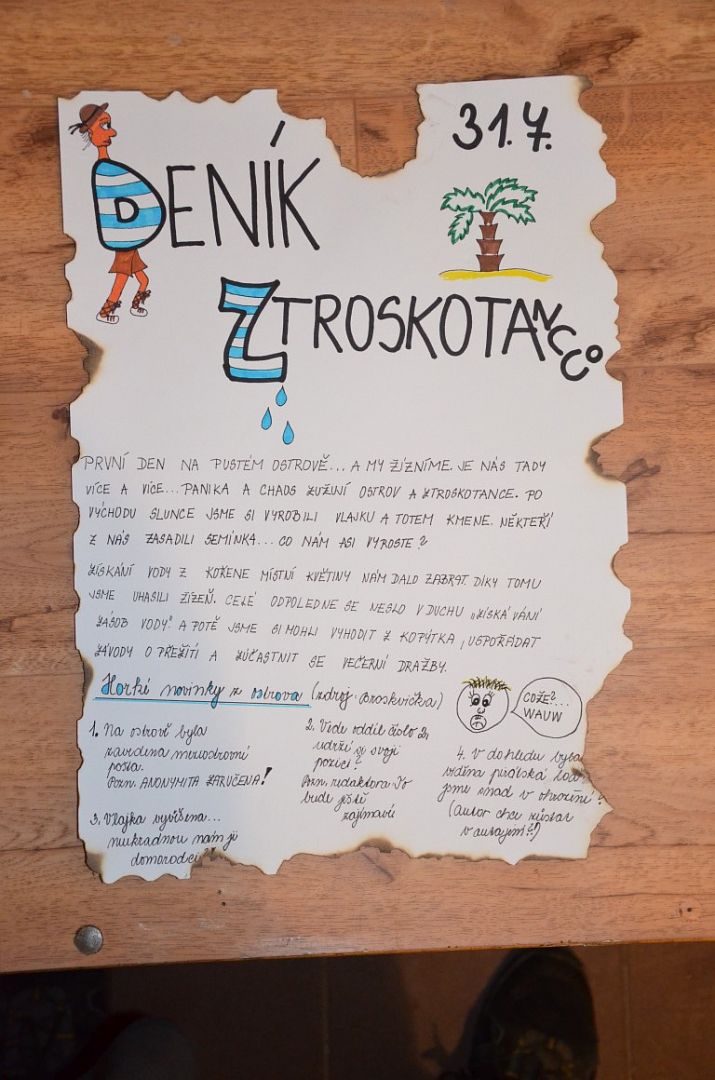 31.7.
DENÍK
ZTROSKOTANCŮ
PRVNÍ DEN NA PUSTÉM OSTROVĚ... A MY ŽÍZNÍME. JE NÁS TADY
VÍCE A VÍCE... PANIKA A CHAOS ZUŽUJÍ OSTROV A ZTROSKOTANCE. PO
VÝCHODU SLUNCE JSME SI VYROBILI VLAJKU A TOTEM KMENE. NĚKTEŘÍ
Z NÁS ZASADILI SEMÍNKA... CO NÁM ASI VYROSTE?
ZÍSKÁNÍ VODY Z KOŘENE MÍSTNÍ KVĚTINY NÁM DALO ZABRAT. DÍKY TOMU
JSME UHASILI ŽÍZEŇ. CELÉ ODPOLEDNE SE NESLO V DUCHU „ZÍSKÁVÁNÍ
ZÁSOB VODY“ A POTÉ JSME SI MOHLI VYHODIT Z KOPÝTKA, USPOŘÁDAT
ZÁVODY O PŘEŽITÍ A ZÚČASTNIT SE VEČERNÍ DRAŽBY.
Horké novinky z ostrova (zdroj: Broskvička)
COŽE?...
WAUW
1. Na ostrově byla
zavedena mezioddílová
pošta.
Pozn. ANONYMITA ZARUČENA!
2. Vede oddíl číslo 2,
udrží si svoji
pozici?
Pozn. redaktora: To
bude ještě
zajímavé
3. Vlajka vyvěšena...
neukradnou nám ji
domorodci?
4. V dohledu byla
viděna pirátská loď
jsme snad v ohrožení?
(Autor chce zůstat
v anonymitě!)